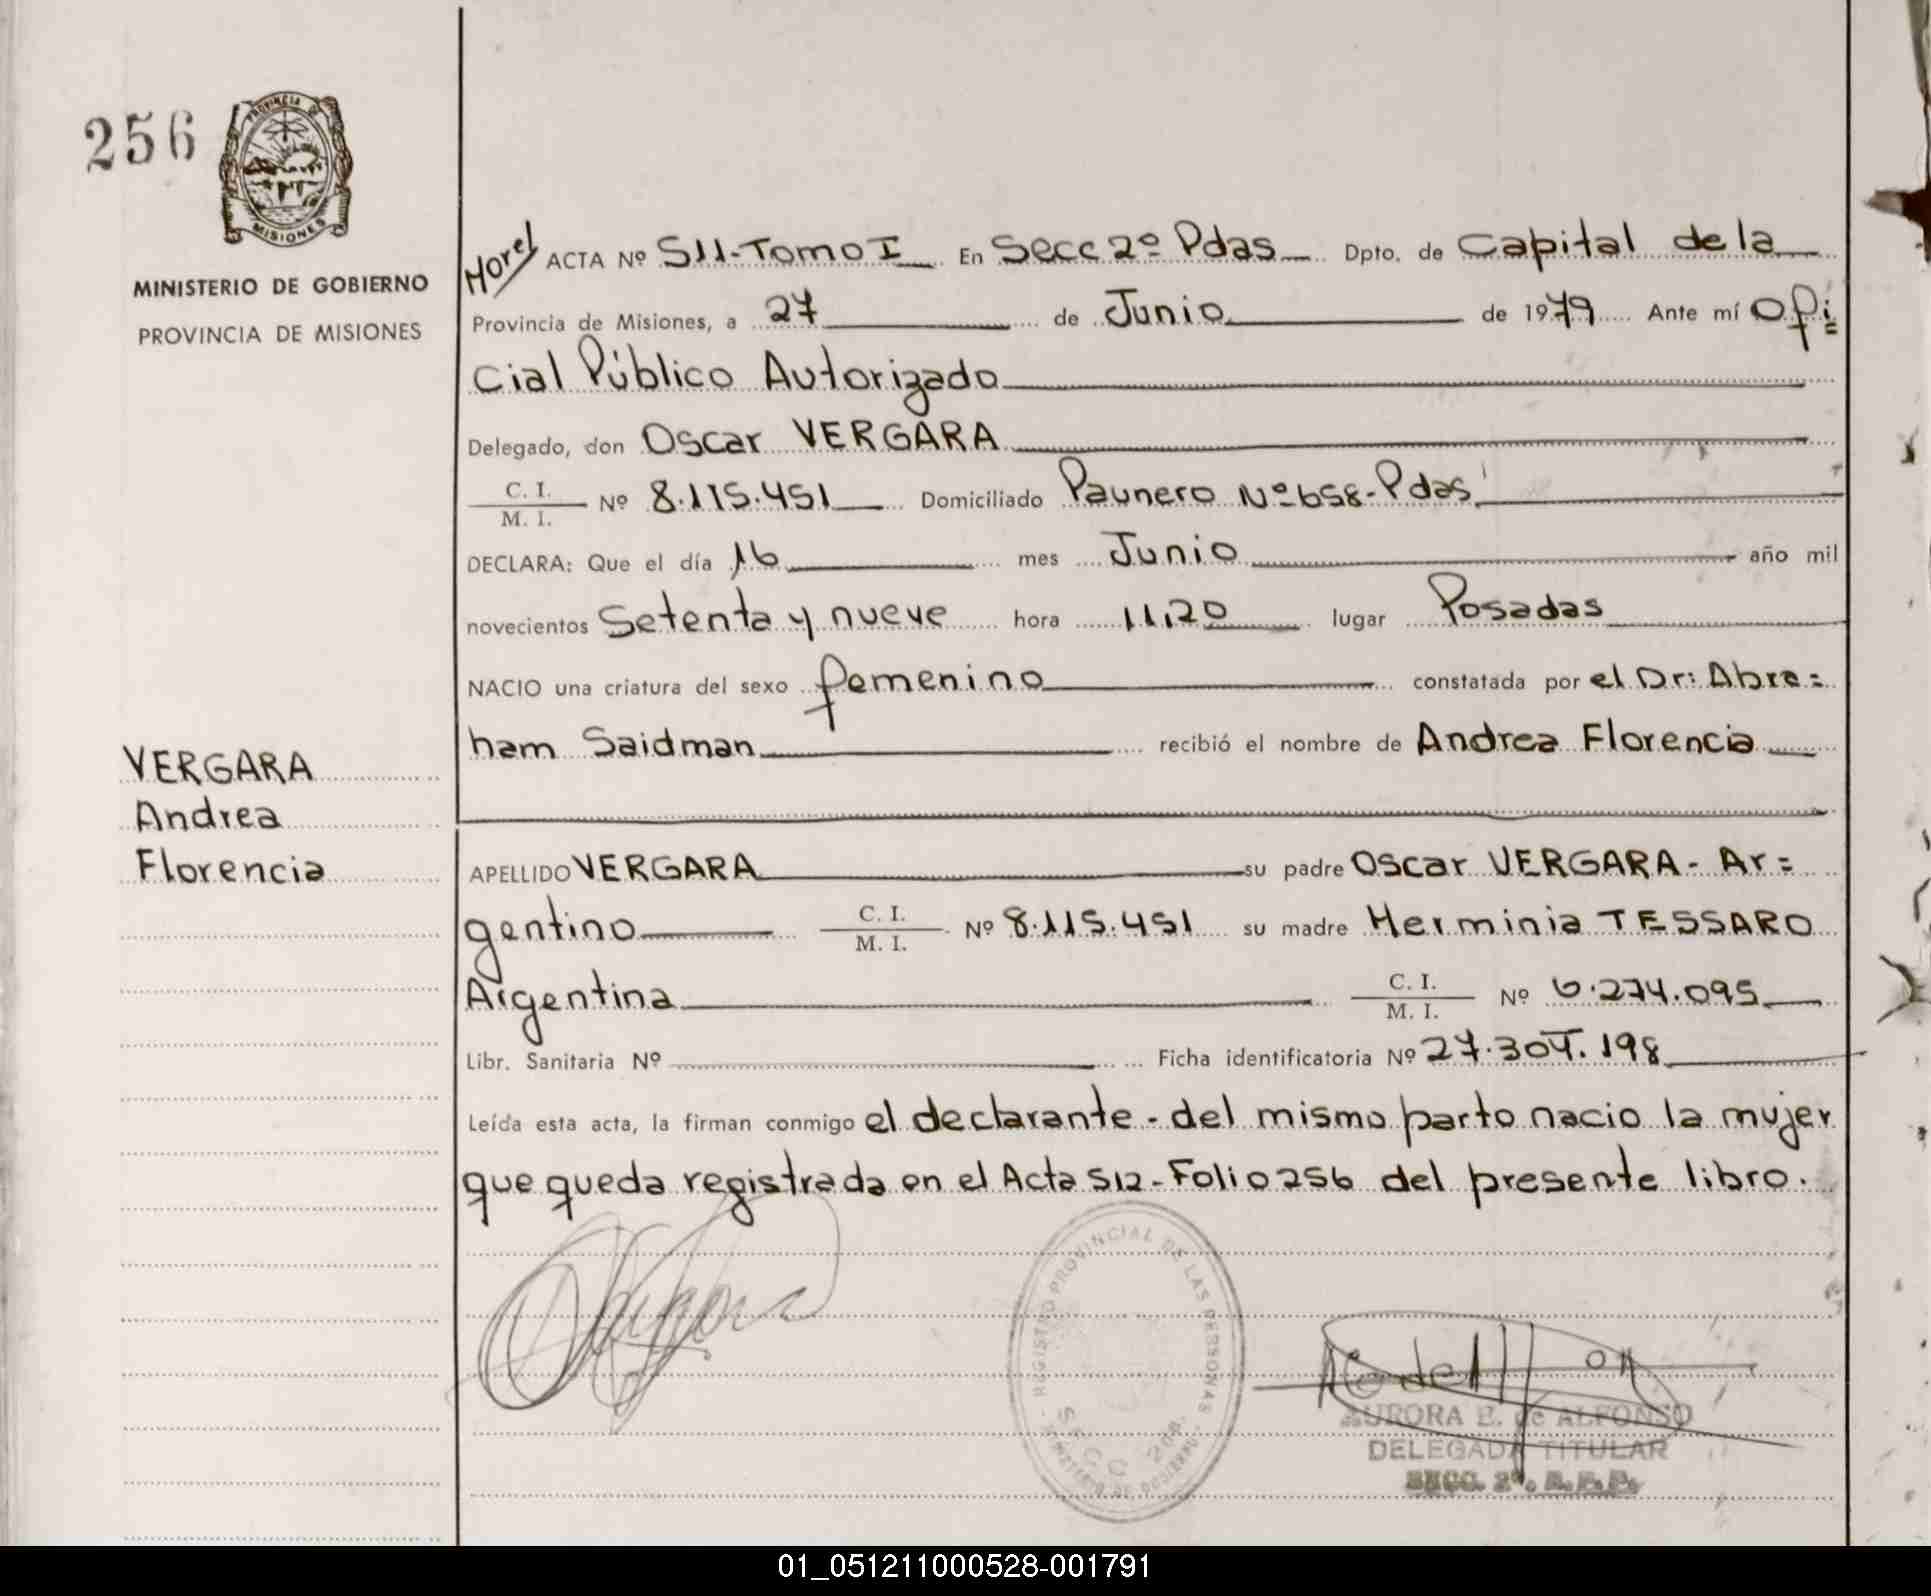 256
PROVINCIA DE
MISIONES
MINISTERIO DE GOBIERNO
PROVINCIA DE MISIONES
VERGARA
Andrea
Florencia
ACTA Nº 511-Tomo I En Secc 2º Pdas Dpto. de Capital de la
Provincia de Misiones, a 27 de Junio de 1979 Ante mí Ofi=
cial Público Autorizado
Delegado, don Oscar VERGARA
C. I.
M. I. Nº 8.115.451 Domiciliado Paunero Nº 658-Pdas
DECLARA: Que el día 16 mes Junio año mil
novecientos Setenta y nueve hora 11,20 lugar Posadas
NACIO una criatura del sexo femenino constatada por el Dr: Abra=
ham Saidman recibió el nombre de Andrea Florencia
APELLIDO VERGARA su padre Oscar VERGARA - Ar=
gentino C. I.
M. I. Nº 8.115.451 su madre Herminia TESSARO
Argentina C. I.
M. I. Nº 6.274.095
Libr. Sanitaria Nº Ficha identificatoria Nº 27.307.198
Leída esta acta, la firman conmigo el declarante - del mismo parto nacio la mujer
que queda registrada en el Acta 512 - Folio 256 del presente libro.
REGISTRO PROVINCIAL DE LAS PERSONAS
SECC 2da
MINISTERIO DE GOBIERNO
AURORA E. de ALFONSO
DELEGADA TITULAR
SECC. 2ª. R.P.P.
01_051211000528-001791